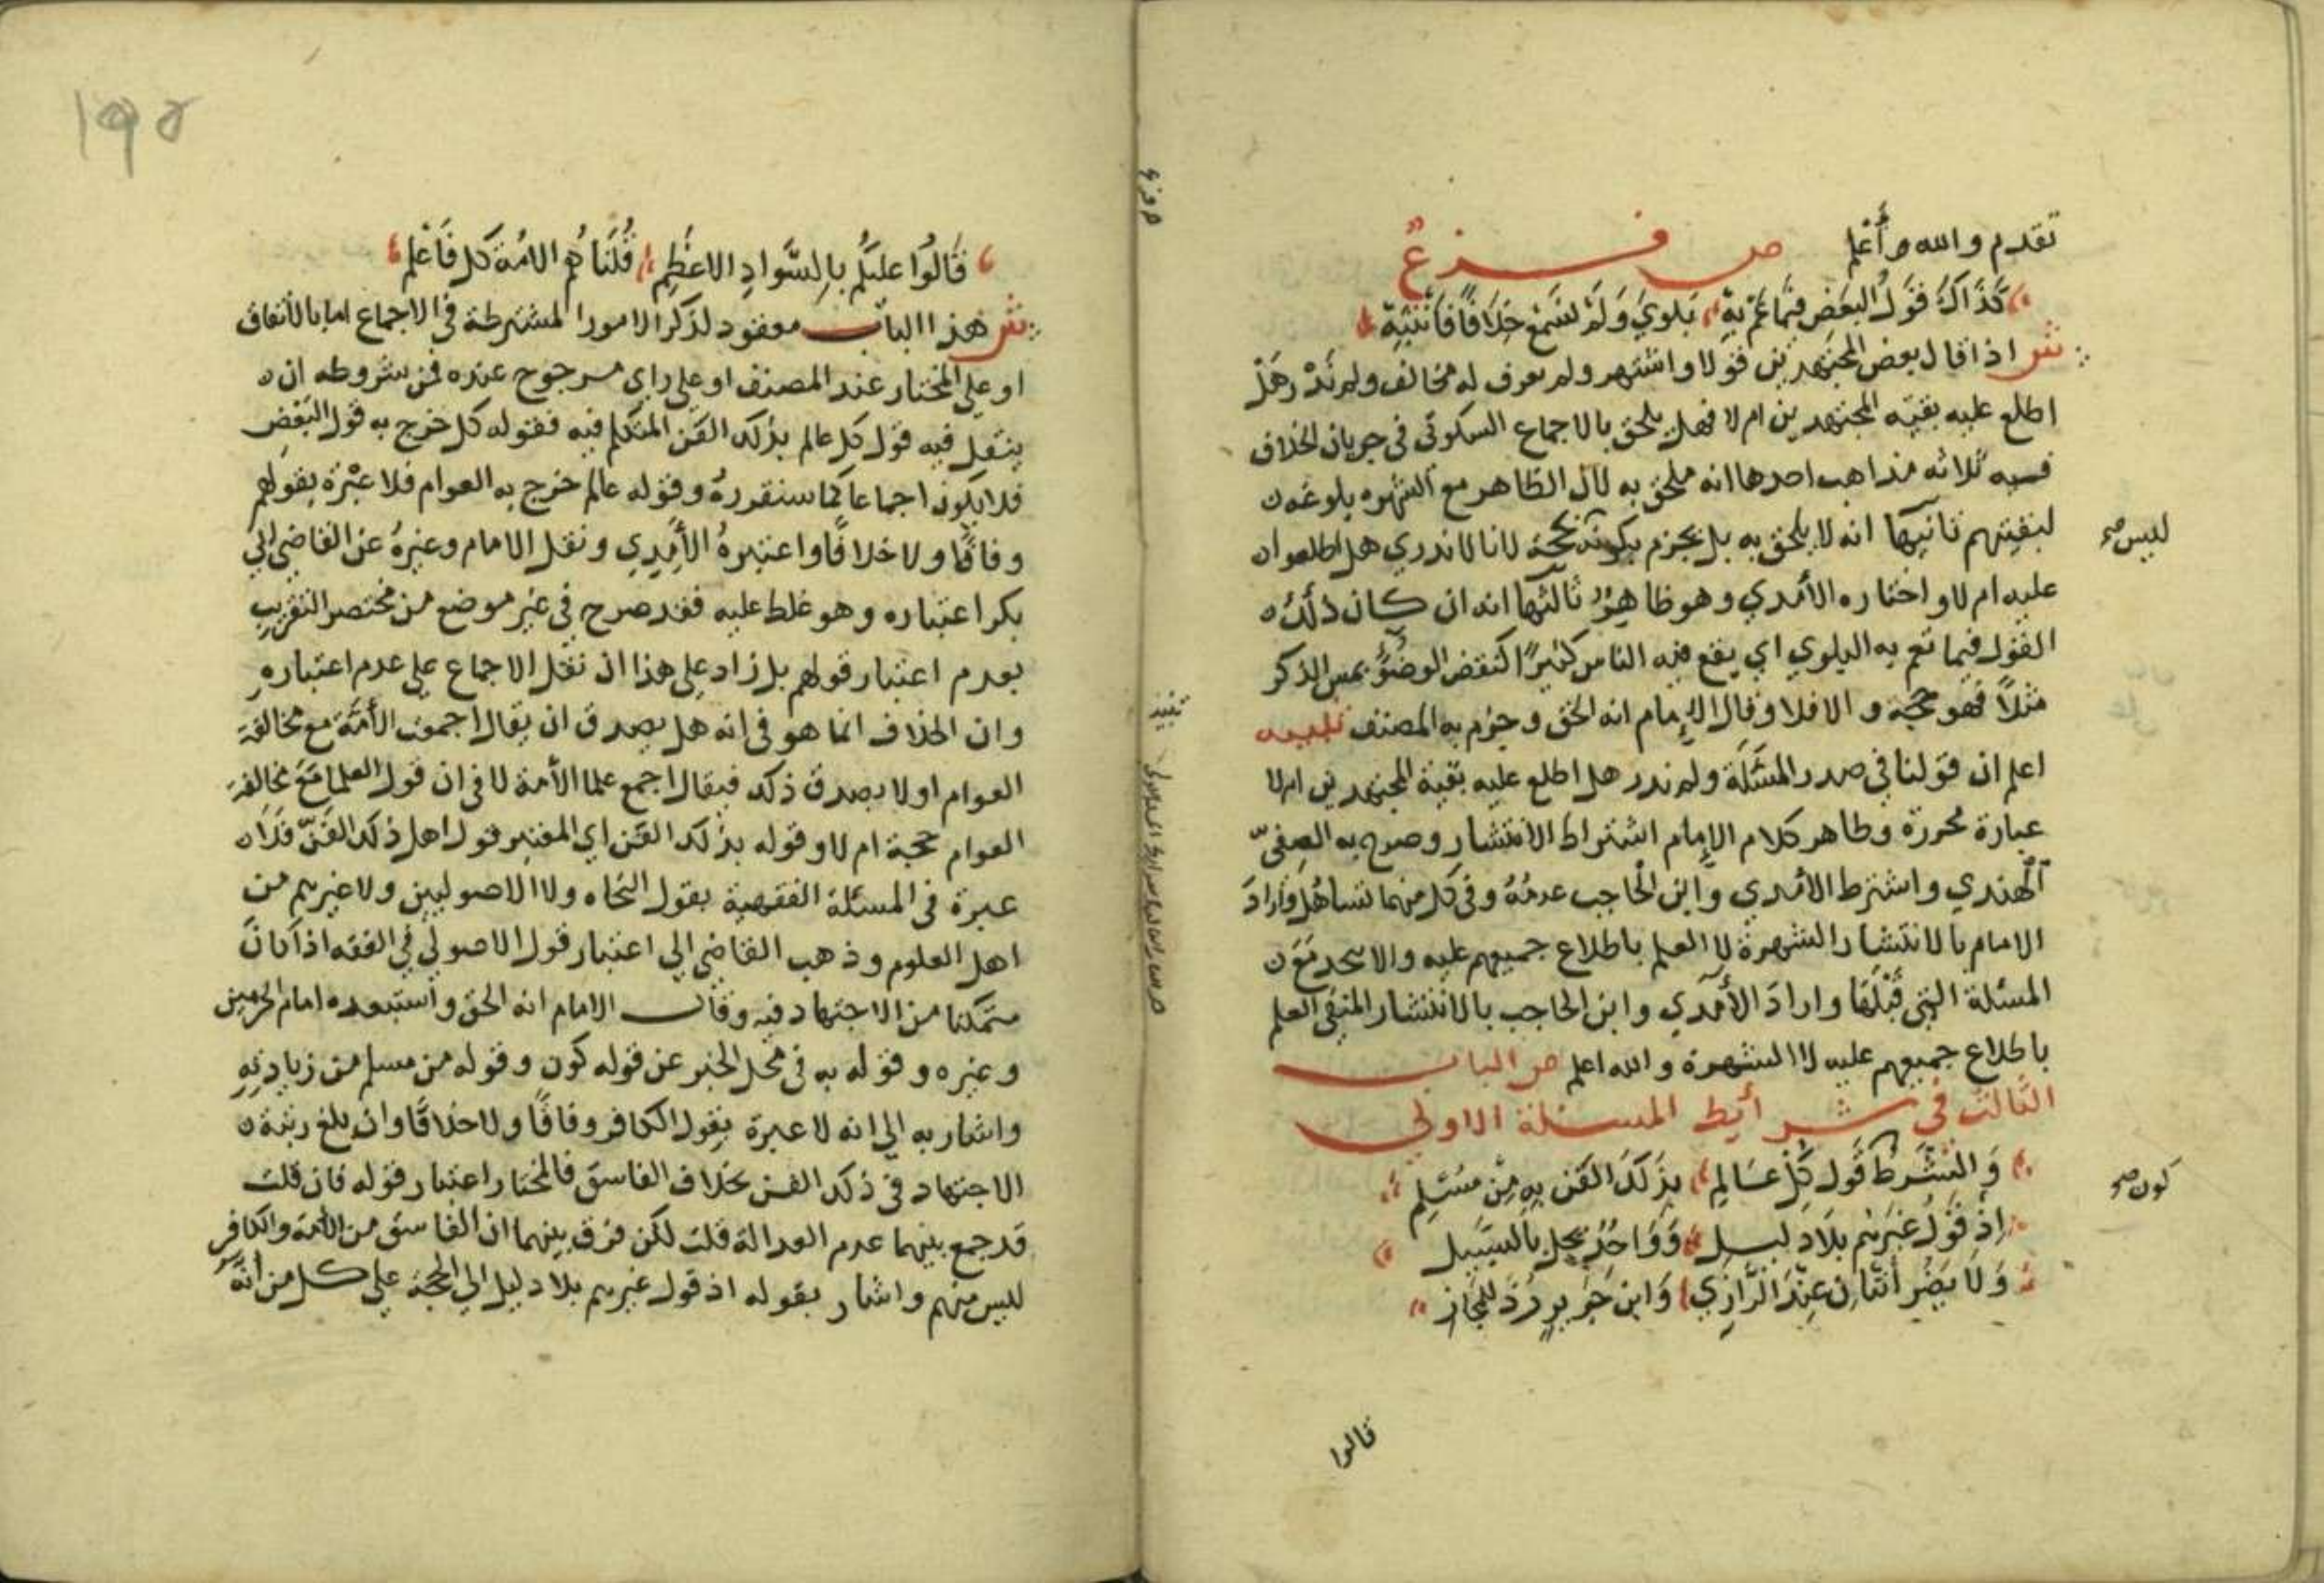 تقدم والله أعلم ص فرع
كَذَاكَ قَوْلُ البَعْضِ فيمَا عَمَّ بِهْ بَلوَي وَلَمْ نَسْمَعْ خِلَافًا فَانْتَبِهْ
ش اذا قال بعض المجتهدين قولا واشتهر ولم نعرف له مخالف ولم نَدْرِ هَلْ
اطلع عليه بقيّه المجتهدين ام لا فهل يلحق بالاجماع السكوتي في جريان الخلاف
فيه ثلاثه مذاهب احدها انه ملحق به لان الظاهر مع الشهره بلوغه
لبقيتهم ثانيها انه لا يلحق به بل نجزم بكونه حجة لانا لا ندري هل اطلعوا
ليس صح
عليه ام لا واختاره الأمدي وهو ظاهر ثالثها انه ان كان ذلك
القول فيما تعم به البلوي اي يقع فيه الناس كثيرًا كنقض الوضؤ بمس الذكر
مثلاً فهو حجة والا فلا وقال الإمام انه الحق وجزم به المصنف تنبيه
اعلم ان قولنا في صدر المسَئلَة ولم ندر هل اطلع عليه بقية المجتهدين ام لا
عبارة محررة وظاهر كلام الإمام اشتراط الانتشار وصرح به الصفيّ
الهندي واشترط الأمدي وابن الحاجب عدمَهُ وفي كل منهما تساهُل وارادَ
الامام بالانتشار الشهرة لا العلم باطلاع جميعهم عليه والا تحد مَعَ
المسئلة التي قَبْلَهَا وارادَ الأمدي وابن الحاجب بالانتشار المنفي العلم
باطلاع جميعهم عليه لا الشهرة والله اعلم ص الباب
الثالث في شرائط المسئلة الاولي
وَالشَّرْطُ قَول كُلِّ عَالِمٍ بِذَلكَ الفَنِّ بِهِ مِنْ مُسْلِمِ
كون صح
إذْ قَوْلُ غَيرِهِمْ بلَا دَليلِ وَوَاحدٌ يخل بالسَّبِيل
وَلا يَضُر اثنَانِ عِنْدَ الرَّازِي وَابن جَرِيرٍ رَدَّ للجَاز
قالوا
فرع
تنبيه
١٩٥
قَالُوا عليكُمُ بِالسَّوادِ الاعظَمِ قُلنَا هُم الامّة كل فَاعْلم
ش هذا الباب معقود لذكر الامور المشترطة في الاجماع اما بالاتفاق
او علي المختار عند المصنف او علي راي مرجوح عنده فمن شروطه ان
ينقل فيه قول كل عالم بذلك الفن المتكلم فيه فقوله كل خرج به قول البَعْضِ
فلا يكون اجماعا كما سنقررهُ وقوله عالم خرج به العوام فلا عِبْرَة بقولهم
وفاقًا ولا خلافًا واعتبرهُ الأمِدِي ونقل الامام وغيرهُ عن القاضي ابي
بكر اعتباره وهو غلط عليه فقد صرح في غير موضع من مختصر التقريب
بعدم اعتبار قولهم بل زاد علي هذا ان نقل الاجماع علي عدم اعتباره
وان الخلاف انما هو في انه هل يصدق ان يقال اجمعت الأمّة مع مخالفة
العوام اولا يصدق ذلك فيقال اجمع علما الأمة لا في ان قول العلما مَعَ مخالفة
العوام حجة ام لا وقوله بذلك الفن اي المعتبر قول اهل ذلك الفَنّ فلا
عبرة في المسئلة الفقهية بقول النحاه ولا الاصوليين ولا غيرهم من
اهل العلوم وذهب القاضي الي اعتبار قول الاصولي في الفقه اذا كانَ
متمكنا من الاجتهاد فيه وقال الامام انه الحق واستبعده امام الحرمين
وغيره وقوله به في محل الخبر عن قوله كون وقوله من مسلم من زيادتهِ
واشار به الي انه لا عبرة بقول الكافر وفاقًا ولا خلافًا وان بلغ رتبة
الاجتهاد في ذلك الفن بخلاف الفاسق فالمختار اعتبار قوله فان قلت
قد جمع بينهما عدم العدالة قلت لكن فرق بينهما ان الفاسق من الأمة والكافر
ليس منهم واشار بقوله اذ قول غيرهم بلا دليل الي الحجة علي كل من انّه